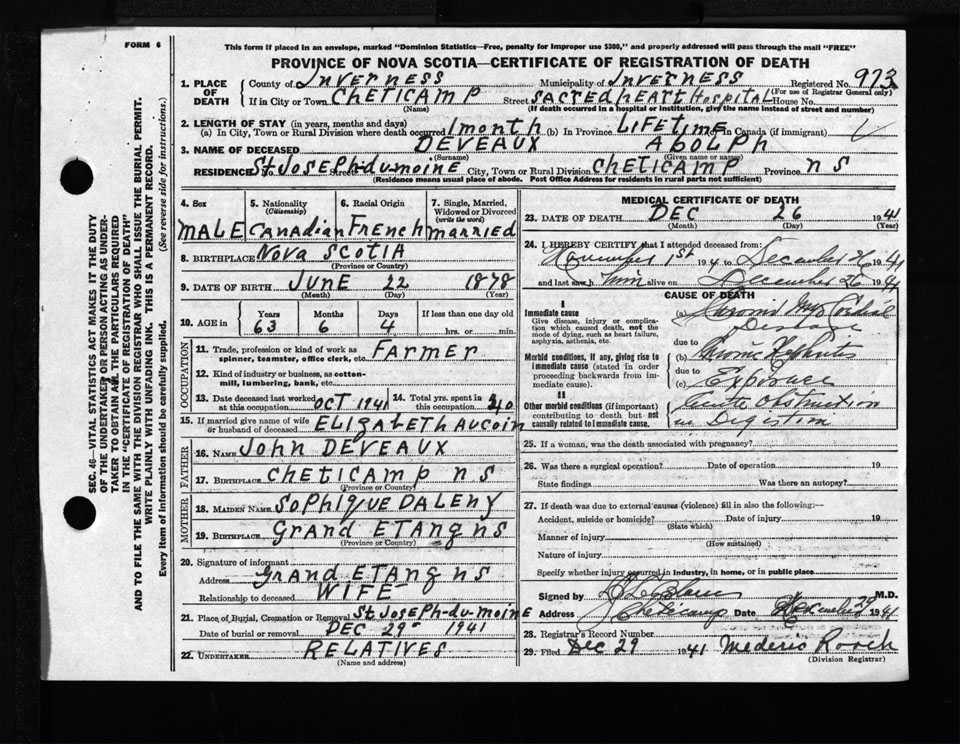 FORM 6
This form if placed in an envelope, marked "Dominion Statistics—Free, penalty for improper use $300," and properly addressed will pass through the mail "FREE"
PROVINCE OF NOVA SCOTIA—CERTIFICATE OF REGISTRATION OF DEATH
1. PLACE OF DEATH County of INVERNESS Municipality of INVERNESS Registered No. 973
(For use of Registrar General only)
If in City or Town CHETICAMP Street SACRED HEART HOSPITAL House No.
(Name) (If death occurred in a hospital or institution, give the name instead of street and number)
2. LENGTH OF STAY (in years, months and days)
(a) In City, Town or Rural Division where death occurred 1 month (b) In Province LIFETIME in Canada (if immigrant)
3. NAME OF DECEASED DEVEAUX ADOLPH
(Surname) (Given name or names)
RESIDENCE No. St JOSEPH-du-moine Street City, Town or Rural Division CHETICAMP Province NS
(Residence means usual place of abode. Post Office Address for residents in rural parts not sufficient)
4. Sex MALE
5. Nationality (Citizenship) Canadian
6. Racial Origin French
7. Single, Married, Widowed or Divorced (write the word) married
8. BIRTHPLACE NOVA SCOTIA
(Province or Country)
9. DATE OF BIRTH JUNE 22 1878
(Month) (Day) (Year)
10. AGE in Years 63 Months 6 Days 4 If less than one day old hrs. or min.
OCCUPATION
11. Trade, profession or kind of work as spinner, teamster, office clerk, etc. FARMER
12. Kind of industry or business, as cotton-mill, lumbering, bank, etc.
13. Date deceased last worked at this occupation OCT 1941
14. Total yrs. spent in this occupation 40
15. If married give name of wife or husband of deceased ELIZABETH AUCOIN
FATHER
16. NAME John DEVEAUX
17. BIRTHPLACE CHETICAMP NS
(Province or Country)
MOTHER
18. MAIDEN NAME SOPHIQUE DALENY
19. BIRTHPLACE GRAND ETANG NS
(Province or Country)
20. Signature of informant
Address GRAND ETANG NS
Relationship to deceased WIFE
21. Place of Burial, Cremation or Removal St JOSEPH-du-MOINE
Date of burial or removal DEC 29 1941
22. UNDERTAKER RELATIVES
(Name and address)
MEDICAL CERTIFICATE OF DEATH
23. DATE OF DEATH DEC 26 1941
(Month) (Day) (Year)
24. I HEREBY CERTIFY that I attended deceased from:
November 1st 1941 to December 26 1941
and last saw him alive on December 26 1941
CAUSE OF DEATH
I
Immediate cause
Give disease, injury or complication which caused death, not the mode of dying, such as heart failure, asphyxia, asthenia, etc.
(a) Chronic Myocardial Disease
due to
Morbid conditions, if any, giving rise to immediate cause (stated in order proceeding backwards from immediate cause).
(b) Chronic Nephritis
due to
(c) Exposure
II
Other morbid conditions (if important) contributing to death but not causally related to immediate cause.
Acute Obstruction in Digestion
25. If a woman, was the death associated with pregnancy?
26. Was there a surgical operation? Date of operation 19
State findings Was there an autopsy?
27. If death was due to external causes (violence) fill in also the following:—
Accident, suicide or homicide? Date of injury 19
(State which)
Manner of injury
(How sustained)
Nature of injury
Specify whether injury occurred in industry, in home, or in public place
Signed by LeBlanc M.D.
Address Cheticamp Date December 29 1941
28. Registrar's Record Number
29. Filed Dec 29 1941 Mederic Roach
(Division Registrar)
SEC. 46—VITAL STATISTICS ACT MAKES IT THE DUTY
OF THE UNDERTAKER OR PERSON ACTING AS UNDER-
TAKER TO OBTAIN ALL THE PARTICULARS REQUIRED
IN THE "CERTIFICATE OF REGISTRATION OF DEATH"
AND TO FILE THE SAME WITH THE DIVISION REGISTRAR WHO SHALL ISSUE THE BURIAL PERMIT.
WRITE PLAINLY WITH UNFADING INK. THIS IS A PERMANENT RECORD.
Every item of information should be carefully supplied. (See reverse side for instructions.)